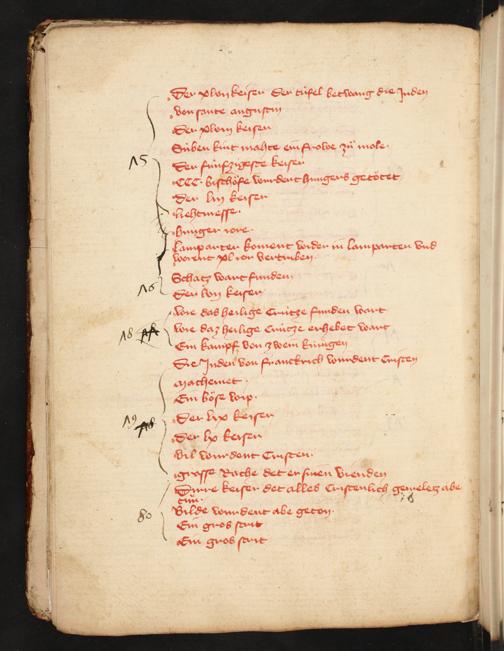 Der xlvij keiser Der túfel betwang die Juden
Von sante augustin
Der xlviij keiser
Súben kint mahte ein frowe zů mole
15
Der fúnfzigeste keiser
CCC bischöfe wurdent hungers getötet
Der liij keiser
liehtmesse
hunger iore
Lamparter koment wider in lamparten und
worent xl ior vertriben
16
Schatz wart funden
Der lvij keiser
wie das heilige Crútze funden wart
18
wie daz heilige Crútze erhebet wart
Ein kampf von zwein kúnigen
Die Juden von Franckrich wurdent Cristen
Machemet
Ein böse wip
19
Der lix keiser
Der lx keiser
Vil wurdent Cristen
grosse Rache det er sinen vienden
Dirre keiser det alles Cristenlich gemelcz abe
tůn
80
Bilde wurdent abe geton
Ein gros strit
Ein gros strit